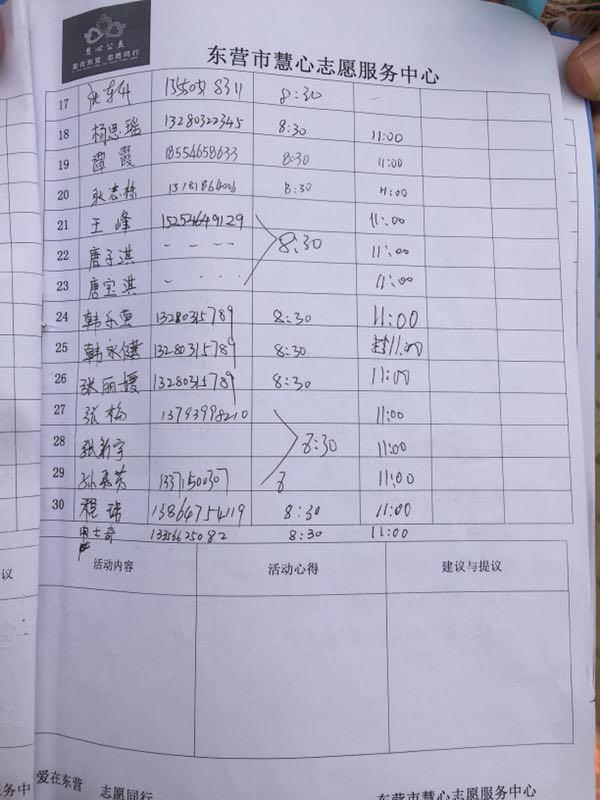 慧心公益
爱在东营 志愿同行
东营市慧心志愿服务中心
17 8:30 —
18 杨思瑶 13280322345 8:30 11:00
19 谭霞 18554658633 8:30 11:00
20 耿志栋 8:30 11:00
21 王峰 15254649129 11:00
22 唐子淇 - - - - 8:30 11:00
23 唐宝淇 - · · · 11:00
24 韩乐 13280315789 8:30 11:00
25 韩永健 13280315789 8:30 11:00
26 张丽媛 13280315789 8:30 11:00
27 张梅 13793998210 11:00
28 张新宇 8:30 11:00
29 13371500307 8 11:00
30 程瑞 13864754119 8:30 11:00
13356625082 8:30 11:00
活动内容 活动心得 建议与提议
议
爱在东营 志愿同行
务中 东营市慧心志愿服务中心